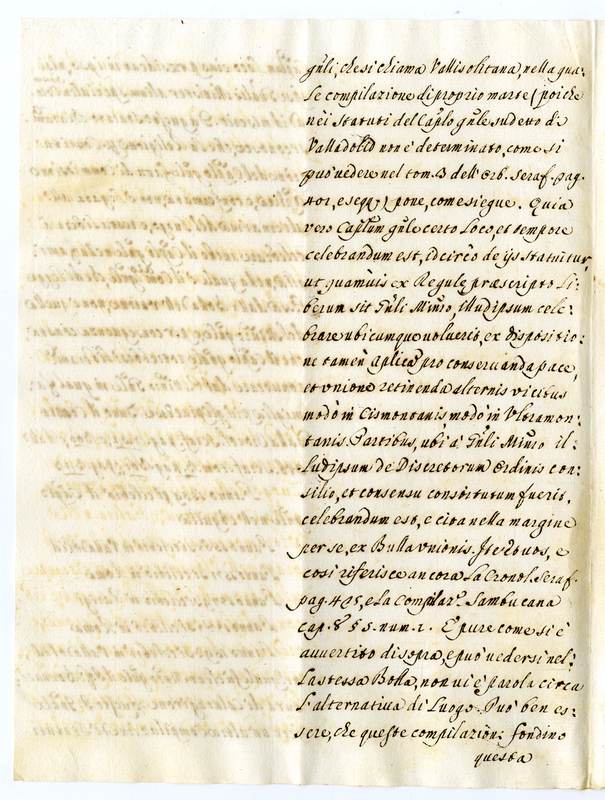 gn̄li, che si chiama Vallisolitana, nella qua:
le compilazione di proprio marte (poiche
nei statuti del Cap̄lo gn̄le sudetto di
Valladolid non è determinato, come si
può vedere nel tom. 3 dell'Orb. Seraf. pag.
401, e seqq) pone, come siegue. Quia
vero Cap̄lum gn̄le certo Loco, et tempore
celebrandum est, idcirco de ijs statuitur,
ut quamuis ex Regulę præscripto Li:
berum sit Gn̄li Min̄ro, illudipsum cele:
brare ubicumque uoluerit, ex dispositio:
ne tamen Aplica pro conseruanda pace,
et vnione retinenda alternis vicibus
modò in Cismontanis modò in Vltramon:
tanis Partibus, ubi à Gn̄li Min̄ro il:
ludipsum de Discretorum Ordinis con:
silio, et consensu constitutum fuerit,
celebrandum est, e cita nella margine
per se, ex Bulla vnionis. Ite et vos, e
così riferisce ancora La Cronol. Seraf.
pag. 405, e La Compilaz.e Sambucana
cap. 8 § 5. num. 1. E pure come si è
auuertito di sopra, e può uedersi nel:
La stessa Bolla, non ui è parola circa
L'alternatiua di Luogo. Può ben es:
sere, che queste compilazioni fondino
questa